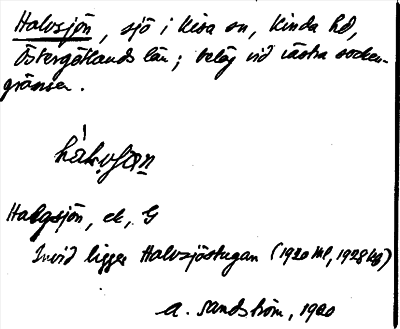 Halvsjön, sjö i Kisa sn, Kinda hd,
Östergötlands län; belåg vid västra socken-
gränsen.
hàlvʃɷn
Halgsjön, ek, G
Invid ligger Halvsjöstugan (1920 ml, 1928
A. Sandström, 1920